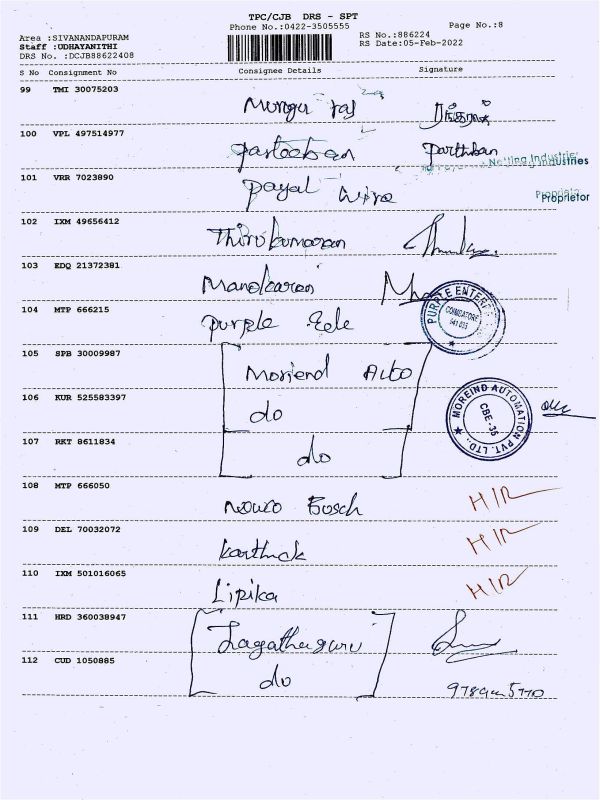 TPC/CJB DRS - SPT
Phone No.:0422-3505555
Page No.:8
Area :SIVANANDAPURAM
RS No.:886224
Staff :UDHAYANITHI
RS Date:05-Feb-2022
DRS No. :DCJB88622408
S No Consignment No Consignee Details Signature
99 TMI 30075203
100 VPL 497514977
Parthiban
Netting Industries
101 VRR 7023890
Payal
Proprietor
102 IXM 49656412
Thirukumaran
103 EDQ 21372381
Manokaran
104 MTP 666215
Purple
PURPLE ENTER
COIMBATORE
641 035
105 SPB 30009987
Moriend Auto
106 KUR 525583397
do
MOREIND AUTOMATION PVT. LTD.,
CBE-35
107 RKT 8611834
do
108 MTP 666050
Bosch H/R
109 DEL 70032072
Karthick H/R
110 IXM 501016065
Lipika H/R
111 HRD 360038947
Jagathaguru
112 CUD 1050885
do